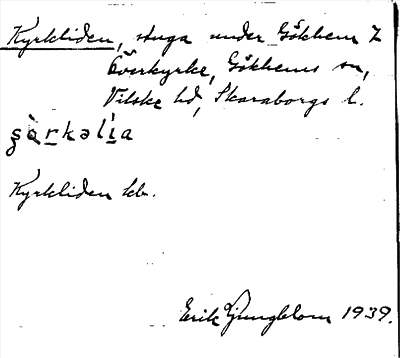 Kyrkliden, stuga under Gökhem 7
Överkyrke, Gökhems sn,
Vilske hd, Skaraborgs l.
Kyrkliden kb.
Erik Ljungblom 1939.